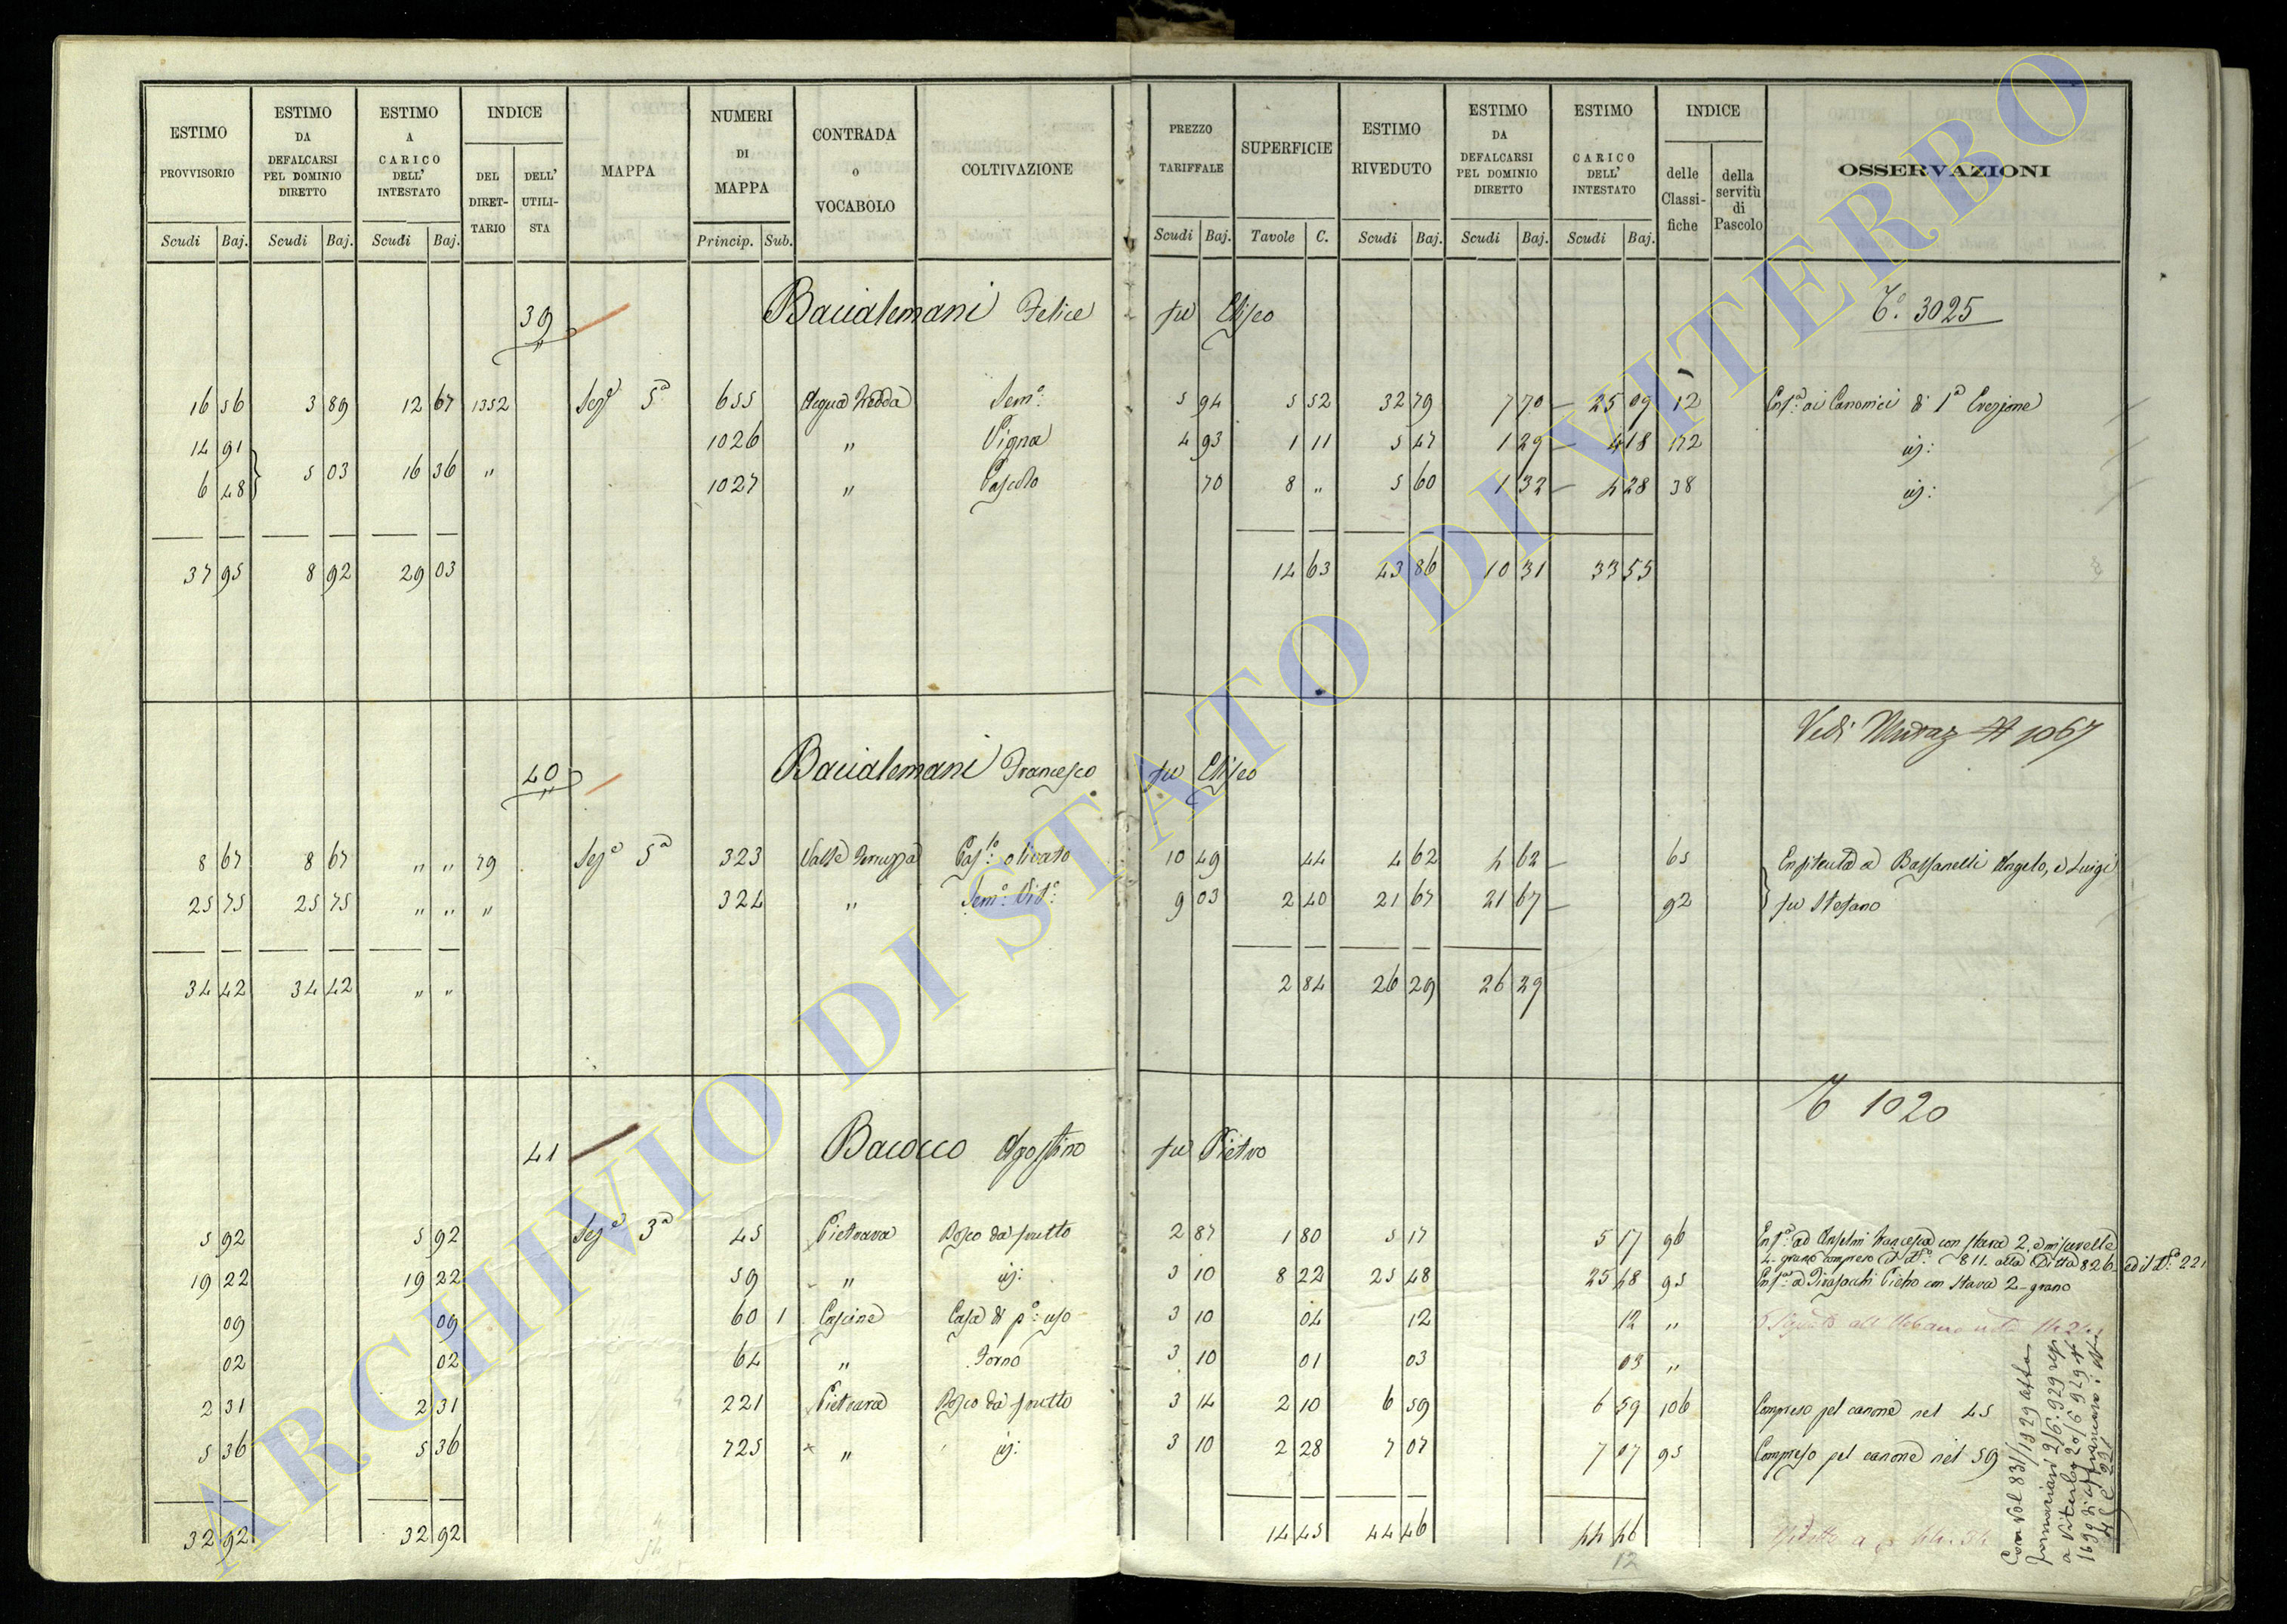 ESTIMO PROVVISORIO | ESTIMO DA DEFALCARSI PEL DOMINIO DIRETTO | ESTIMO A CARICO DELL' INTESTATO | INDICE | MAPPA | NUMERI DI MAPPA | CONTRADA o VOCABOLO | COLTIVAZIONE | PREZZO TARIFFALE | SUPERFICIE | ESTIMO RIVEDUTO | ESTIMO DA DEFALCARSI PEL DOMINIO DIRETTO | ESTIMO CARICO DELL' INTESTATO | INDICE | OSSERVAZIONI
DEL DIRET-TARIO | DELL' UTILI-STA | delle Classi-fiche | della servitù di Pascolo
Scudi Baj. | Scudi Baj. | Scudi Baj. | Princip. Sub. | Scudi Baj. | Tavole C. | Scudi Baj. | Scudi Baj. | Scudi Baj.
39 Bacialemani Felice fu Eliseo To. 3025
16 56 | 3 89 | 12 67 | 1352 | Seze 5a | 655 | Acqua Fredda | Semo: | 5 94 | 5 52 | 32 79 | 7 70 | 25 09 | 12 | Enfa: ai Canonici di 1a Erezione
14 91 | 1026 | " | Vigna | 4 93 | 1 11 | 5 47 | 1 29 | 4 18 | 172 | id:
5 03 | 16 36 | "
6 48 | 1027 | " | Pascolo | 70 | 8 " | 5 60 | 1 32 | 4 28 | 38 | id:
37 95 | 8 92 | 29 03 | 14 63 | 43 86 | 10 31 | 33 55
Vedi 1067
40 Bacialemani Francesco fu Eliseo
8 67 | 8 67 | " " | 79 | Seze 5a | 323 | Valle | Pasto: olivato | 10 49 | 44 | 4 62 | 4 62 | 65 | Enfiteutà a Bassanelli Angelo, e Luigi
25 75 | 25 75 | " " | " | 324 | " | Semo: Vito: | 9 03 | 2 40 | 21 67 | 21 67 | 92 | fu Stefano
34 42 | 34 42 | " " | 2 84 | 26 29 | 26 29
T 1020
41 Bacocco Agostino fu Pietro
5 92 | 5 92 | Seze 3a | 45 | Pietrara | Bosco da frutto | 2 87 | 1 80 | 5 17 | 5 17 | 96 | Enfa: ad Anselmi Francesca con stara 2. e misurelle
4. grano compreso il No: 811 alla Ditta 826 ed il No: 221
19 22 | 19 22 | 59 | " | id: | 3 10 | 8 22 | 25 48 | 25 48 | 95 | Enfa: a Pietro con stara 2 grano
09 | 09 | 60 1 | Cascine | Casa di po: uso | 3 10 | 04 | 12 | 12 | "
02 | 02 | 64 | " | Forno | 3 10 | 01 | 03 | 03 | "
2 31 | 2 31 | 221 | Pietrara | Bosco da frutto | 3 14 | 2 10 | 6 59 | 6 59 | 106 | Compreso pel canone nel 45
5 36 | 5 36 | 725 | " | id: | 3 10 | 2 28 | 7 07 | 7 07 | 95 | Compreso pel canone nel 59
32 92 | 32 92 | 14 45 | 44 46 | 44 46
12
Con Vol 831/1929 atto
2/6.929 rep
a Viterbo 20/6 929
1690 di affrancazione i Ni
45 e 221
ARCHIVIO DI STATO DI VITERBO